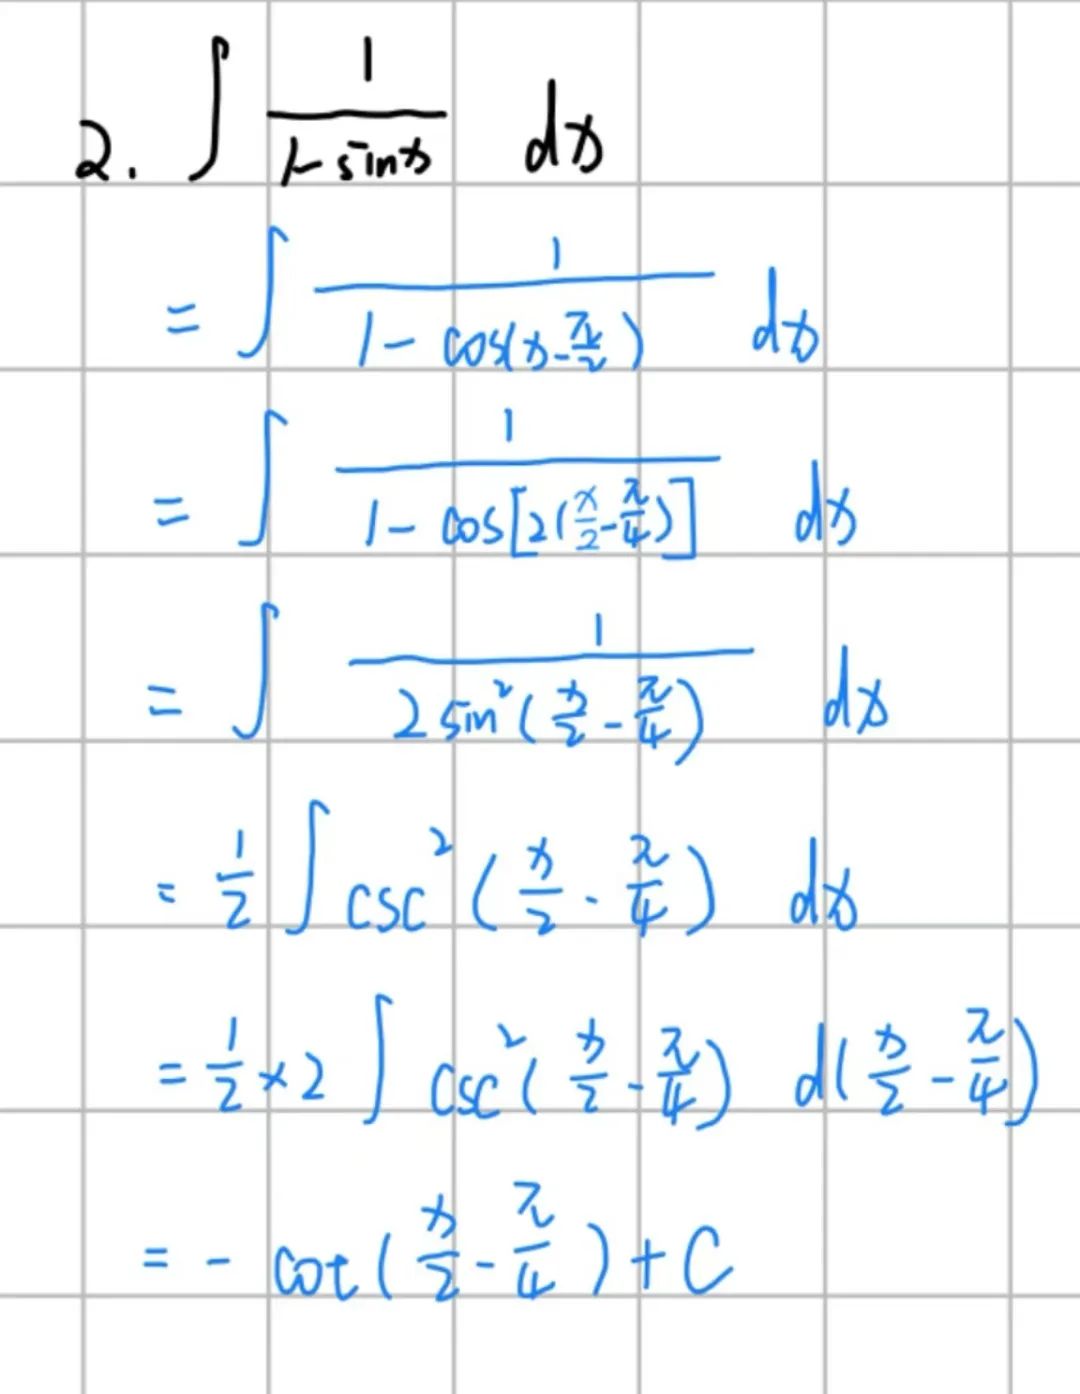 2. ∫ 1/(1-sinx) dx
= ∫ 1/(1-cos(x-π/2)) dx
= ∫ 1/(1-cos[2(x/2-π/4)]) dx
= ∫ 1/(2sin²(x/2-π/4)) dx
= 1/2 ∫ csc²(x/2-π/4) dx
= 1/2 × 2 ∫ csc²(x/2-π/4) d(x/2-π/4)
= -cot(x/2-π/4)+C